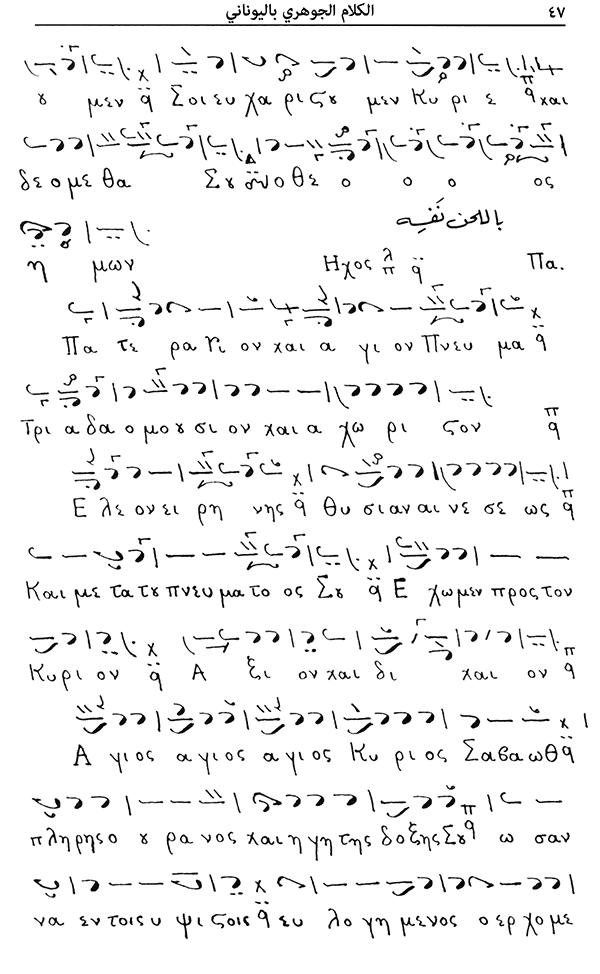 الكلام الجوهري باليوناني ٤٧
ȣ μεν Σοι ευ χα ρι ϛȣ μεν Κυ ρι ε και
δε ο με θα Σȣ ο Θε ο ο ο ος
باللحن نَفْسِه
η μων Ηχος λ π Πα.
Πα τε ρα Υι ον και α γι ον Πνευ μα
Τρι α δα ο μο ȣ σι ον και α χω ρι ϛον
Ε λε ον ει ρη νης θυ σι αν αι νε σε ως
Και με τα τȣ πνευ μα το ος Σȣ Ε χω μεν προς τον
Κυ ρι ον Α ξι ον και δι και ον
Α γι ος α γι ος α γι ος Κυ ρι ος Σα βα ωθ
πλη ρης ο ȣ ρα νος και η γη της δο ξης Σȣ ω σαν
να εν τοις υ ψι ϛοις ευ λο γη με νος ο ερ χο με